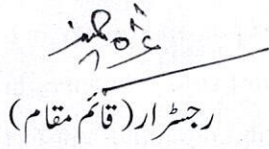 رجسٹرار (قائم مقام)